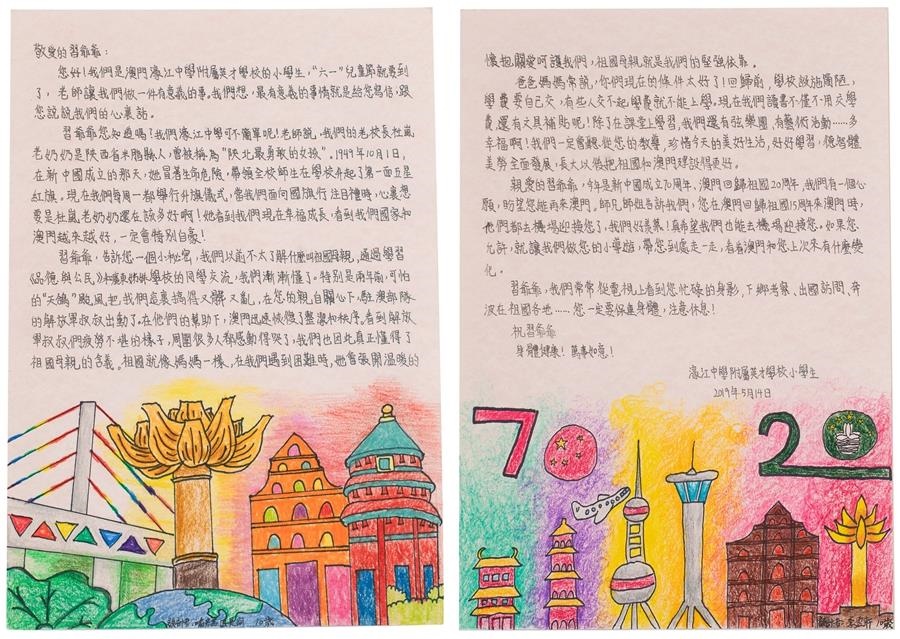 敬愛的習爺爺：
您好！我們是澳門濠江中學附屬英才學校的小學生，“六一”兒童節就要到
了，老師讓我們做一件有意義的事。我們想，最有意義的事情就是給您寫信，跟
您說說我們的心裏話。
習爺爺您知道嗎！我們濠江中學可不簡單呢！老師說，我們的老校長杜嵐
老奶奶是陝西省米脂縣人，曾被稱為“陝北最勇敢的女孩”。1949年10月1日，
在新中國成立的那天，她冒著生命危險，帶領全校師生在學校升起了第一面五星
紅旗。現在我們每周一都舉行升旗儀式，當我們面向國旗行注目禮時，心裏想
要是杜嵐老奶奶還在該多好啊！她看到我們現在幸福成長，看到我們國家和
澳門越來越好，一定會特別自豪！
習爺爺，告訴您一個小秘密，我們以前不太了解什麼叫祖國母親，通過學習
《品德與公民》和學校的同學交流，我們漸漸懂了。特別是兩年前，可怕
的“天鴿”颱風把我們這裏搞得又髒又亂，在您的親自關心下，駐澳部隊
的解放軍叔叔出動了。在他們的幫助下，澳門迅速恢復了整潔和秩序。看到解放
軍叔叔們疲勞不堪的樣子，周圍很多人都感動得哭了，我們也因此真正懂得了
祖國母親的含義。祖國就像媽媽一樣，在我們遇到困難時，她會張開溫暖的
10歲
懷抱關愛呵護我們，祖國母親就是我們的堅強依靠。
爸爸媽媽常說，你們現在的條件太好了！回歸前，學校設施簡陋，
學費要自己交，有些人交不起學費就不能上學。現在我們讀書不僅不用交學
費，還有文具補貼呢！除了在課堂上學習，我們還有弦樂團，有藝術活動……多
幸福啊！我們一定會聽從您的教導，珍惜今天的美好生活，好好學習，德智體
美勞全面發展，長大以後把祖國和澳門建設得更好。
親愛的習爺爺，今年是新中國成立70周年、澳門回歸祖國20周年，我們有一個心
願，盼望您能再來澳門。師兄師姐告訴我們，您在澳門回歸祖國15周年來澳門時，
他們都去機場迎接您了，我們好羨慕！真希望我們也能去機場迎接您。如果您
允許，就讓我們做您的小導遊，帶您到處走一走，看看澳門和您上次來有什麼變
化。
習爺爺，我們常常從電視上看到您忙碌的身影，下鄉考察、出國訪問、奔
波在祖國各地……您一定要保重身體，注意休息！
祝習爺爺
身體健康！萬事如意！
濠江中學附屬英才學校小學生
2019年5月14日
70
20
10歲